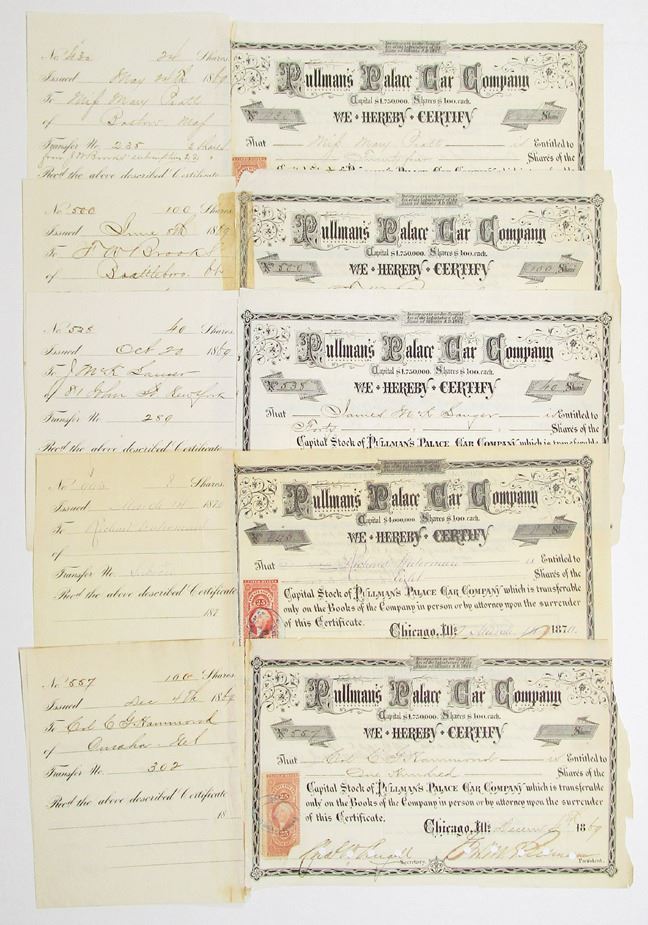 No. 430 24 Shares
Issued May 24th 1869
To Miss Mary Pratt
of Boston Mass
Transfer No. 235 2 shares
Rec'd the above described Certificate
Incorporated under Special
Act of the Legislature of the
State of Illinois A.D. 1867.
Pullman's Palace Car Company
Capital $1,750,000. Shares $100. each.
No. 430 24 Shares
WE HEREBY CERTIFY
That Miss Mary Pratt is Entitled to
Twenty four Shares of the
No. 500 100 Shares
Issued June 5th 1869
To F W Brooks
of Brattleboro
Incorporated under Special
Act of the Legislature of the
State of Illinois A.D. 1867.
Pullman's Palace Car Company
Capital $1,750,000. Shares $100. each.
No. 500 100 Shares
WE HEREBY CERTIFY
No. 538 40 Shares
Issued Oct 20 1869
To J McK Sanger
of 81 John St New York
Transfer No. 280
Rec'd the above described Certificate
Incorporated under Special
Act of the Legislature of the
State of Illinois A.D. 1867.
Pullman's Palace Car Company
Capital $1,750,000. Shares $100. each.
No. 538 40 Shares
WE HEREBY CERTIFY
That James McK Sanger is Entitled to
Forty Shares of the
Capital Stock of PULLMAN'S PALACE CAR COMPANY which is transferable
No. 8 Shares
Issued March 1870
To Richard
of
Transfer No.
Rec'd the above described Certificate
187
Pullman's Palace Car Company
Capital $4,000,000. Shares $100. each.
No. Shares
WE HEREBY CERTIFY
That Richard is Entitled to
Shares of the
Capital Stock of PULLMAN'S PALACE CAR COMPANY which is transferable
only on the Books of the Company in person or by attorney upon the surrender
of this Certificate.
Chicago, Ill: March 1870.
No. 557 100 Shares
Issued Dec 4th 1869
To Col C G Hammond
of Omaha Neb
Transfer No. 302
Rec'd the above described Certificate
18
Incorporated under Special
Act of the Legislature of the
State of Illinois A.D. 1867.
Pullman's Palace Car Company
Capital $1,750,000. Shares $100. each.
No. 557 Shares
WE HEREBY CERTIFY
That Col C G Hammond is Entitled to
One Hundred Shares of the
Capital Stock of PULLMAN'S PALACE CAR COMPANY which is transferable
only on the Books of the Company in person or by attorney upon the surrender
of this Certificate.
Chicago, Ill: Decem 4th 1869
Secretary. President.